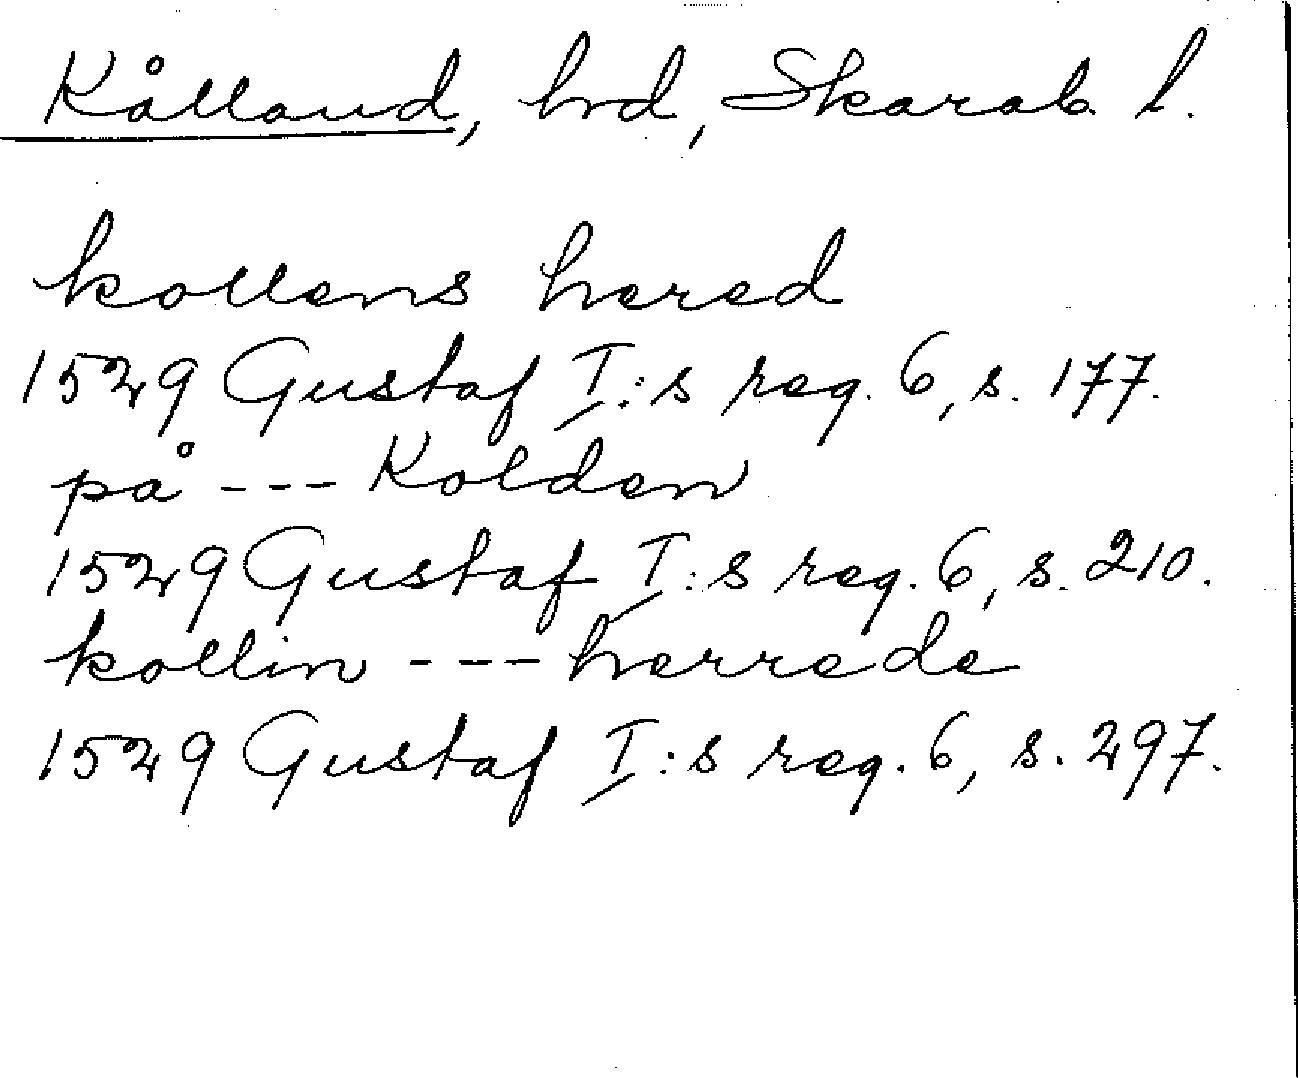 Kålland, hrd, Skarab. l.
kollens hered
1529 Gustaf I:s reg. 6, s. 177.
på --- Kolden
1529 Gustaf I:s reg. 6, s. 210.
kollin --- herrede
1529 Gustaf I:s reg. 6, s. 297.